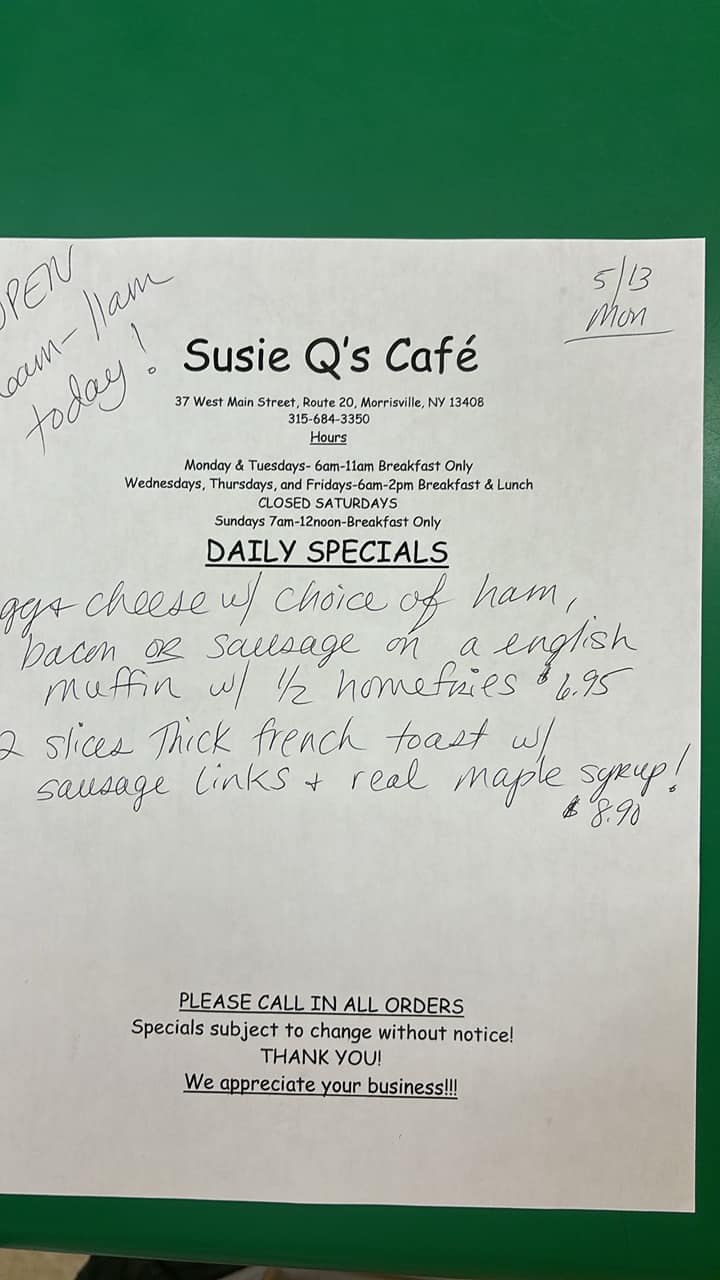 OPEN
6am-11am
today!
5/13
Mon
Susie Q's Café
37 West Main Street, Route 20, Morrisville, NY 13408
315-684-3350
Hours
Monday & Tuesdays- 6am-11am Breakfast Only
Wednesdays, Thursdays, and Fridays-6am-2pm Breakfast & Lunch
CLOSED SATURDAYS
Sundays 7am-12noon-Breakfast Only
DAILY SPECIALS
eggs cheese w/ choice of ham,
bacon OR sausage on a english
muffin w/ 1/2 homefries $6.95
2 slices Thick french toast w/
sausage links + real maple syrup!
$8.90
PLEASE CALL IN ALL ORDERS
Specials subject to change without notice!
THANK YOU!
We appreciate your business!!!